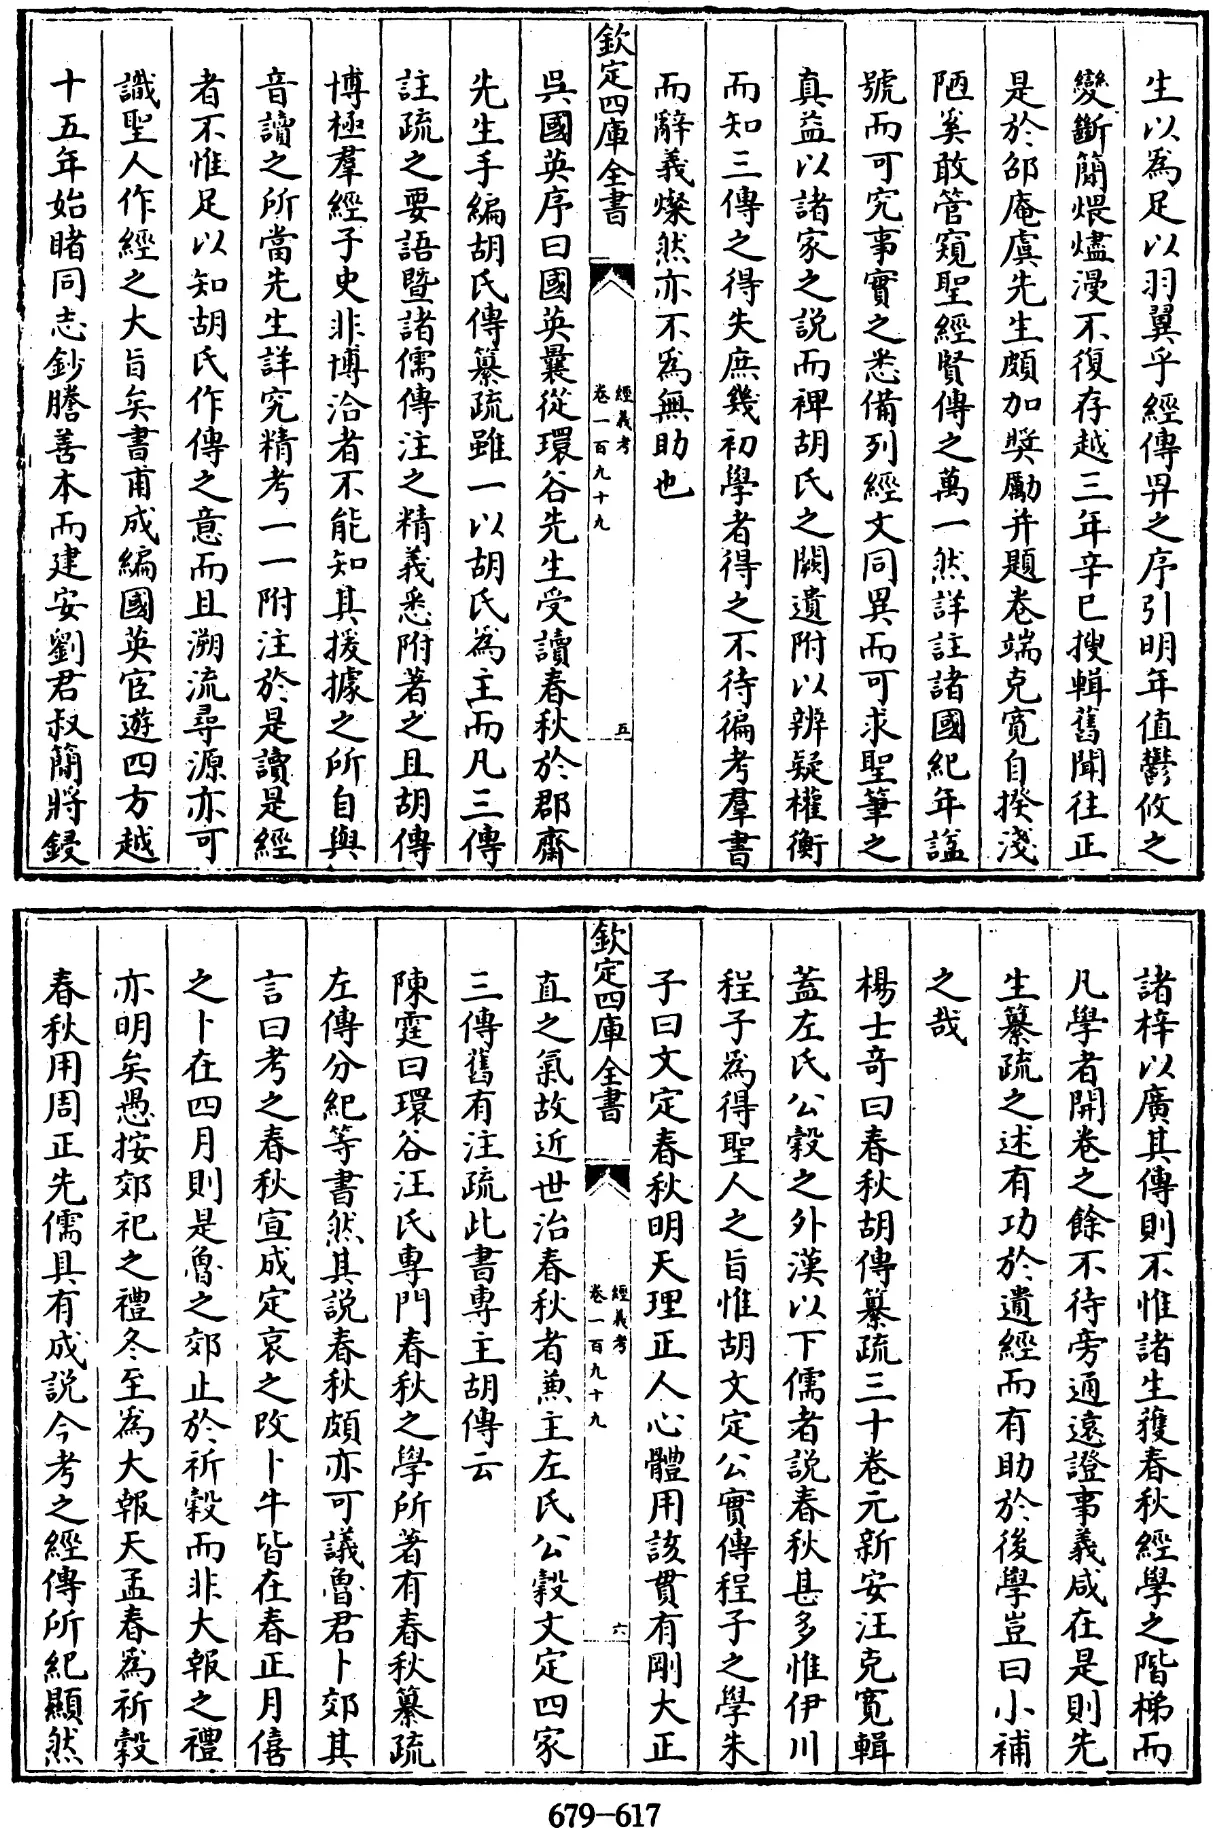 生以爲足以羽翼乎經傳畀之序引明年值鬱攸之
變斷簡煨燼漫不復存越三年辛巳搜輯舊聞往正
是於邵庵虞先生頗加奬勵并題卷端克寛自揆淺
陋奚敢管窺聖經賢傳之萬一然詳註諸國紀年諡
號而可究事實之悉備列經文同異而可求聖筆之
真益以諸家之説而裨胡氏之闕遺附以辨疑權衡
而知三傳之得失庶幾初學者得之不待徧考羣書
而辭義燦然亦不爲無助也
欽定四庫全書
經義考
卷一百九十九
五
吳國英序曰國英曩從環谷先生受讀春秋於郡齋
先生手編胡氏傳纂疏雖一以胡氏爲主而凡三傳
註疏之要語暨諸儒傳注之精義悉附著之且胡傳
博極羣經子史非博洽者不能知其援據之所自與
音讀之所當先生詳究精考一一附注於是讀是經
者不惟足以知胡氏作傳之意而且溯流尋源亦可
識聖人作經之大旨矣書甫成編國英宦遊四方越
十五年始睹同志鈔謄善本而建安劉君叔簡將鋟
諸梓以廣其傳則不惟諸生獲春秋經學之階梯而
凡學者開卷之餘不待旁通遠證事義咸在是則先
生纂疏之述有功於遺經而有助於後學豈曰小補
之哉
楊士奇曰春秋胡傳纂疏三十卷元新安汪克寛輯
蓋左氏公穀之外漢以下儒者説春秋甚多惟伊川
程子爲得聖人之旨惟胡文定公實傳程子之學朱
子曰文定春秋明天理正人心體用該貫有剛大正
欽定四庫全書
經義考
卷一百九十九
六
直之氣故近世治春秋者兼主左氏公穀文定四家
三傳舊有注疏此書專主胡傳云
陳霆曰環谷汪氏專門春秋之學所著有春秋纂疏
左傳分紀等書然其説春秋頗亦可議魯君卜郊其
言曰考之春秋宣成定哀之改卜牛皆在春正月僖
之卜在四月則是魯之郊止於祈穀而非大報之禮
亦明矣愚按郊祀之禮冬至爲大報天孟春爲祈穀
春秋用周正先儒具有成説今考之經傳所紀顯然
679-617